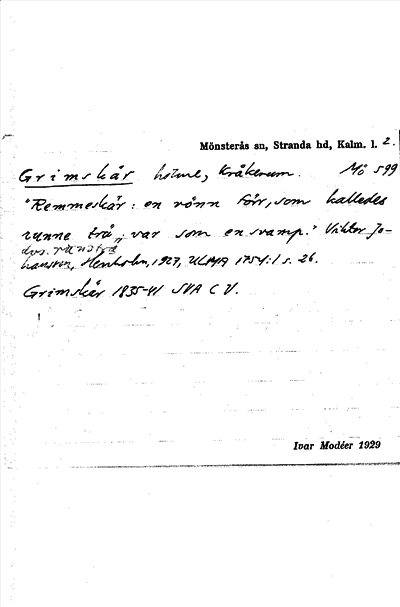 Mönsterås sn, Stranda hd, Kalm. l. 2.
Grimskär holme, Kråkerum. Mö 599
"Remmeskär: en vånn förr, som kalledes
runne trå„; var som en svamp." Viktor Jo-
dvs.
hansson, Henholm, 1927, ULMA 1754:1 s. 26.
Grimskär 1835-41 SKA C V.
Ivar Modéer 1929